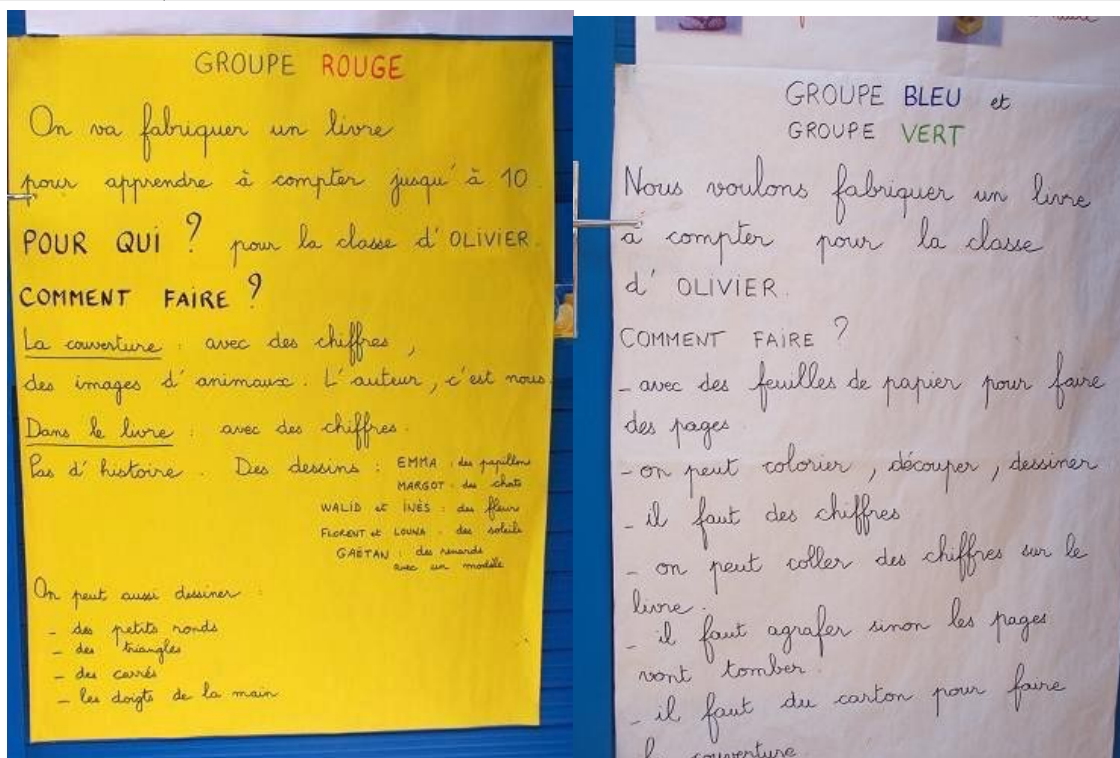 GROUPE ROUGE
On va fabriquer un livre
pour apprendre à compter jusqu'à 10.
POUR QUI ? pour la classe d'OLIVIER.
COMMENT FAIRE ?
La couverture : avec des chiffres,
des images d'animaux. L'auteur, c'est nous.
Dans le livre : avec des chiffres.
Pas d'histoire. Des dessins : EMMA : des papillons
MARGOT : des chats
WALID et INÈS : des fleurs
FLORENT et LOUNA : des soleils
GAËTAN : des renards
avec un modèle
On peut aussi dessiner :
- des petits ronds
- des triangles
- des carrés
- les doigts de la main
GROUPE BLEU et
GROUPE VERT
Nous voulons fabriquer un livre
à compter pour la classe
d'OLIVIER.
COMMENT FAIRE ?
- avec des feuilles de papier pour faire
des pages.
- on peut colorier, découper, dessiner
- il faut des chiffres
- on peut coller des chiffres sur le
livre.
- il faut agrafer sinon les pages
vont tomber.
- il faut du carton pour faire
la couverture